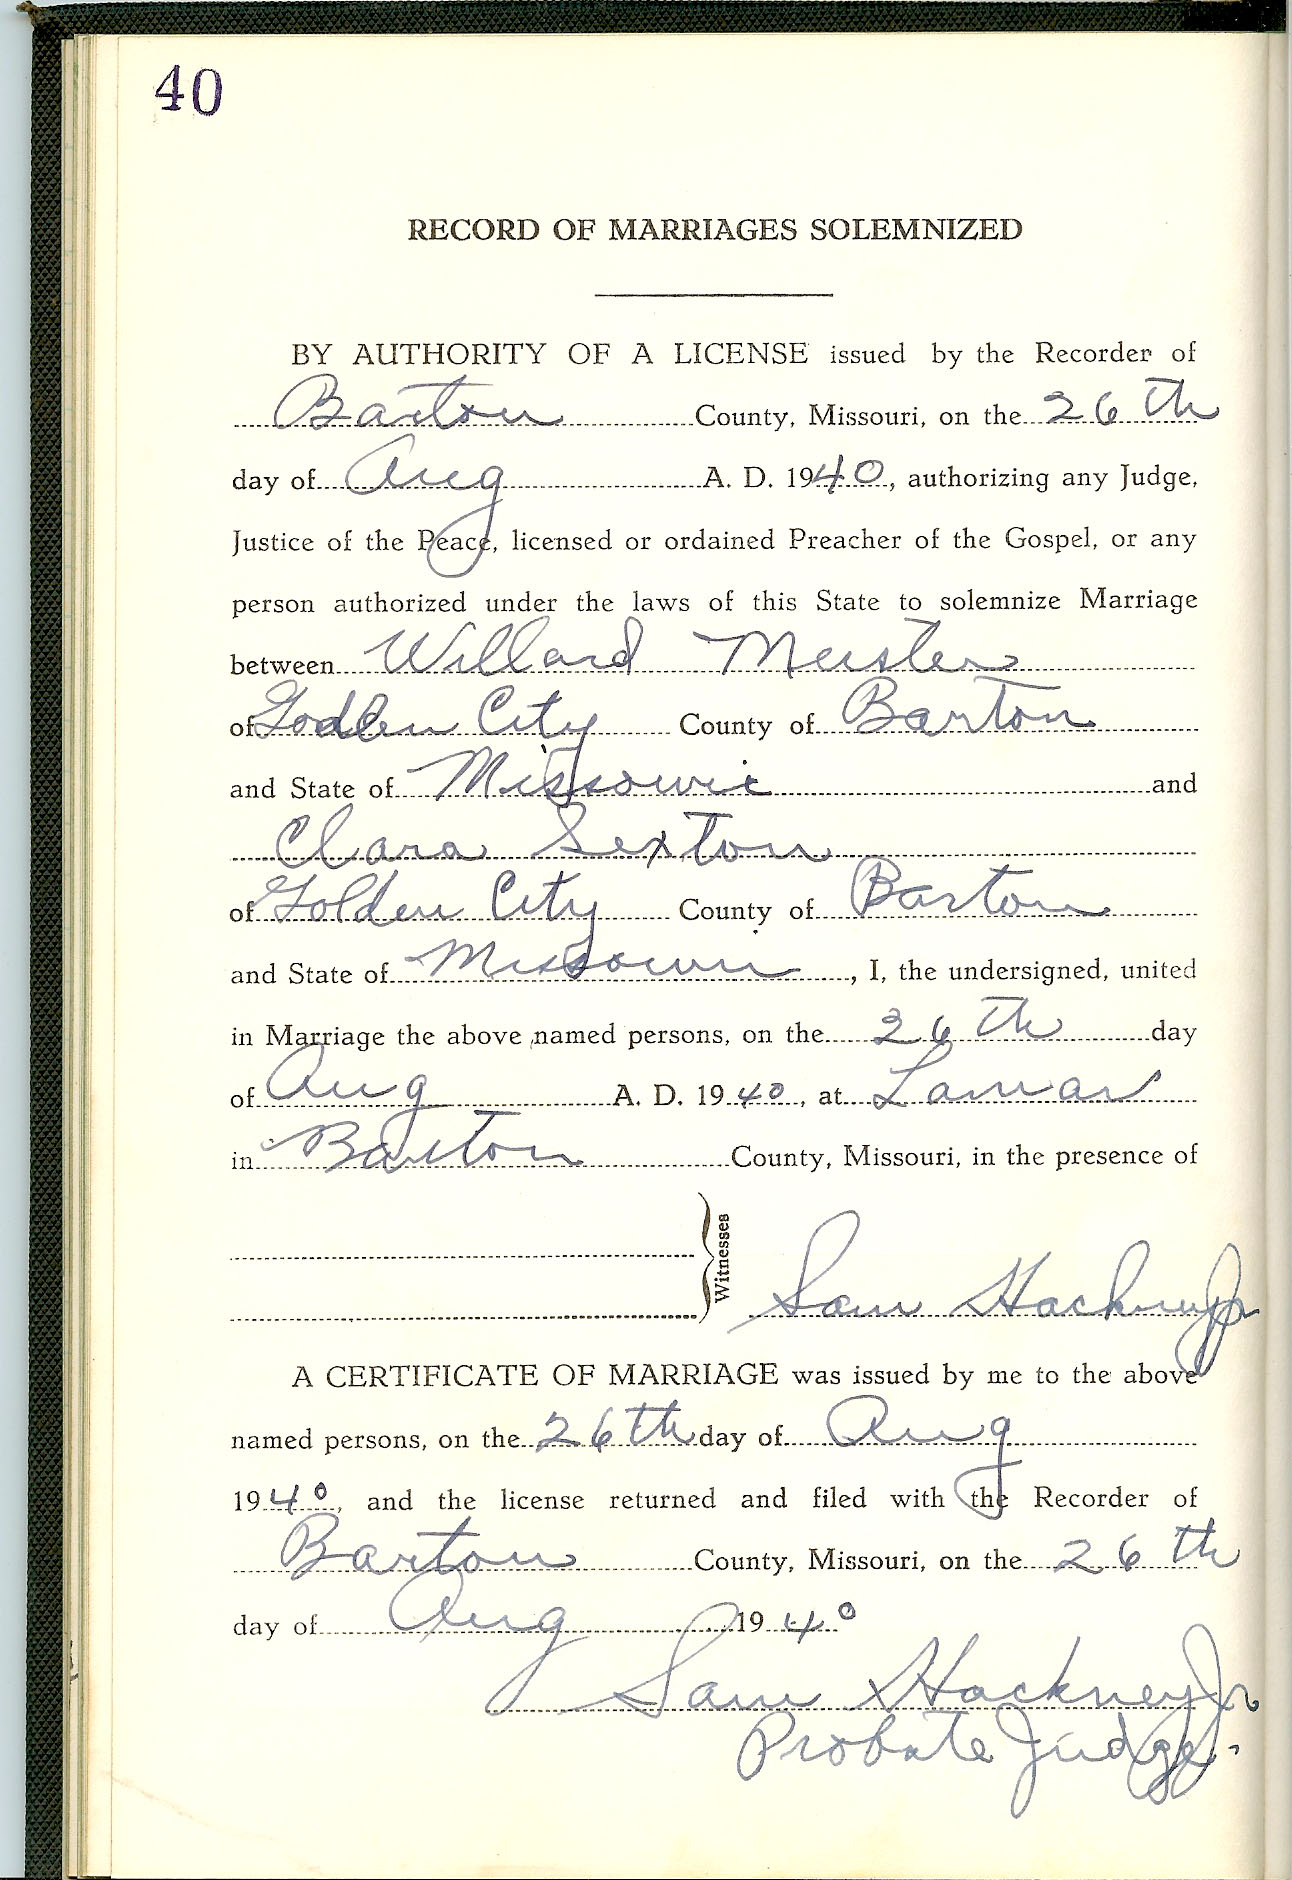 40
RECORD OF MARRIAGES SOLEMNIZED
BY AUTHORITY OF A LICENSE issued by the Recorder of
Barton County, Missouri, on the 26th
day of Aug A. D. 1940, authorizing any Judge,
Justice of the Peace, licensed or ordained Preacher of the Gospel, or any
person authorized under the laws of this State to solemnize Marriage
between Willard Meister
of Godlen City County of Barton
and State of Missouri and
Clara Sexton
of Golden City County of Barton
and State of Missouri, I, the undersigned, united
in Marriage the above named persons, on the 26th day
of Aug A. D. 1940, at Lamar
in Barton County, Missouri, in the presence of
Witnesses
Sam Hackney Jr
A CERTIFICATE OF MARRIAGE was issued by me to the above
named persons, on the 26th day of Aug
1940, and the license returned and filed with the Recorder of
Barton County, Missouri, on the 26th
day of Aug 1940
Sam Hackney Jr
Probate Judge.